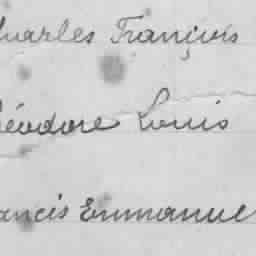 Charles François
Théodore Louis
Francis Emmanuel